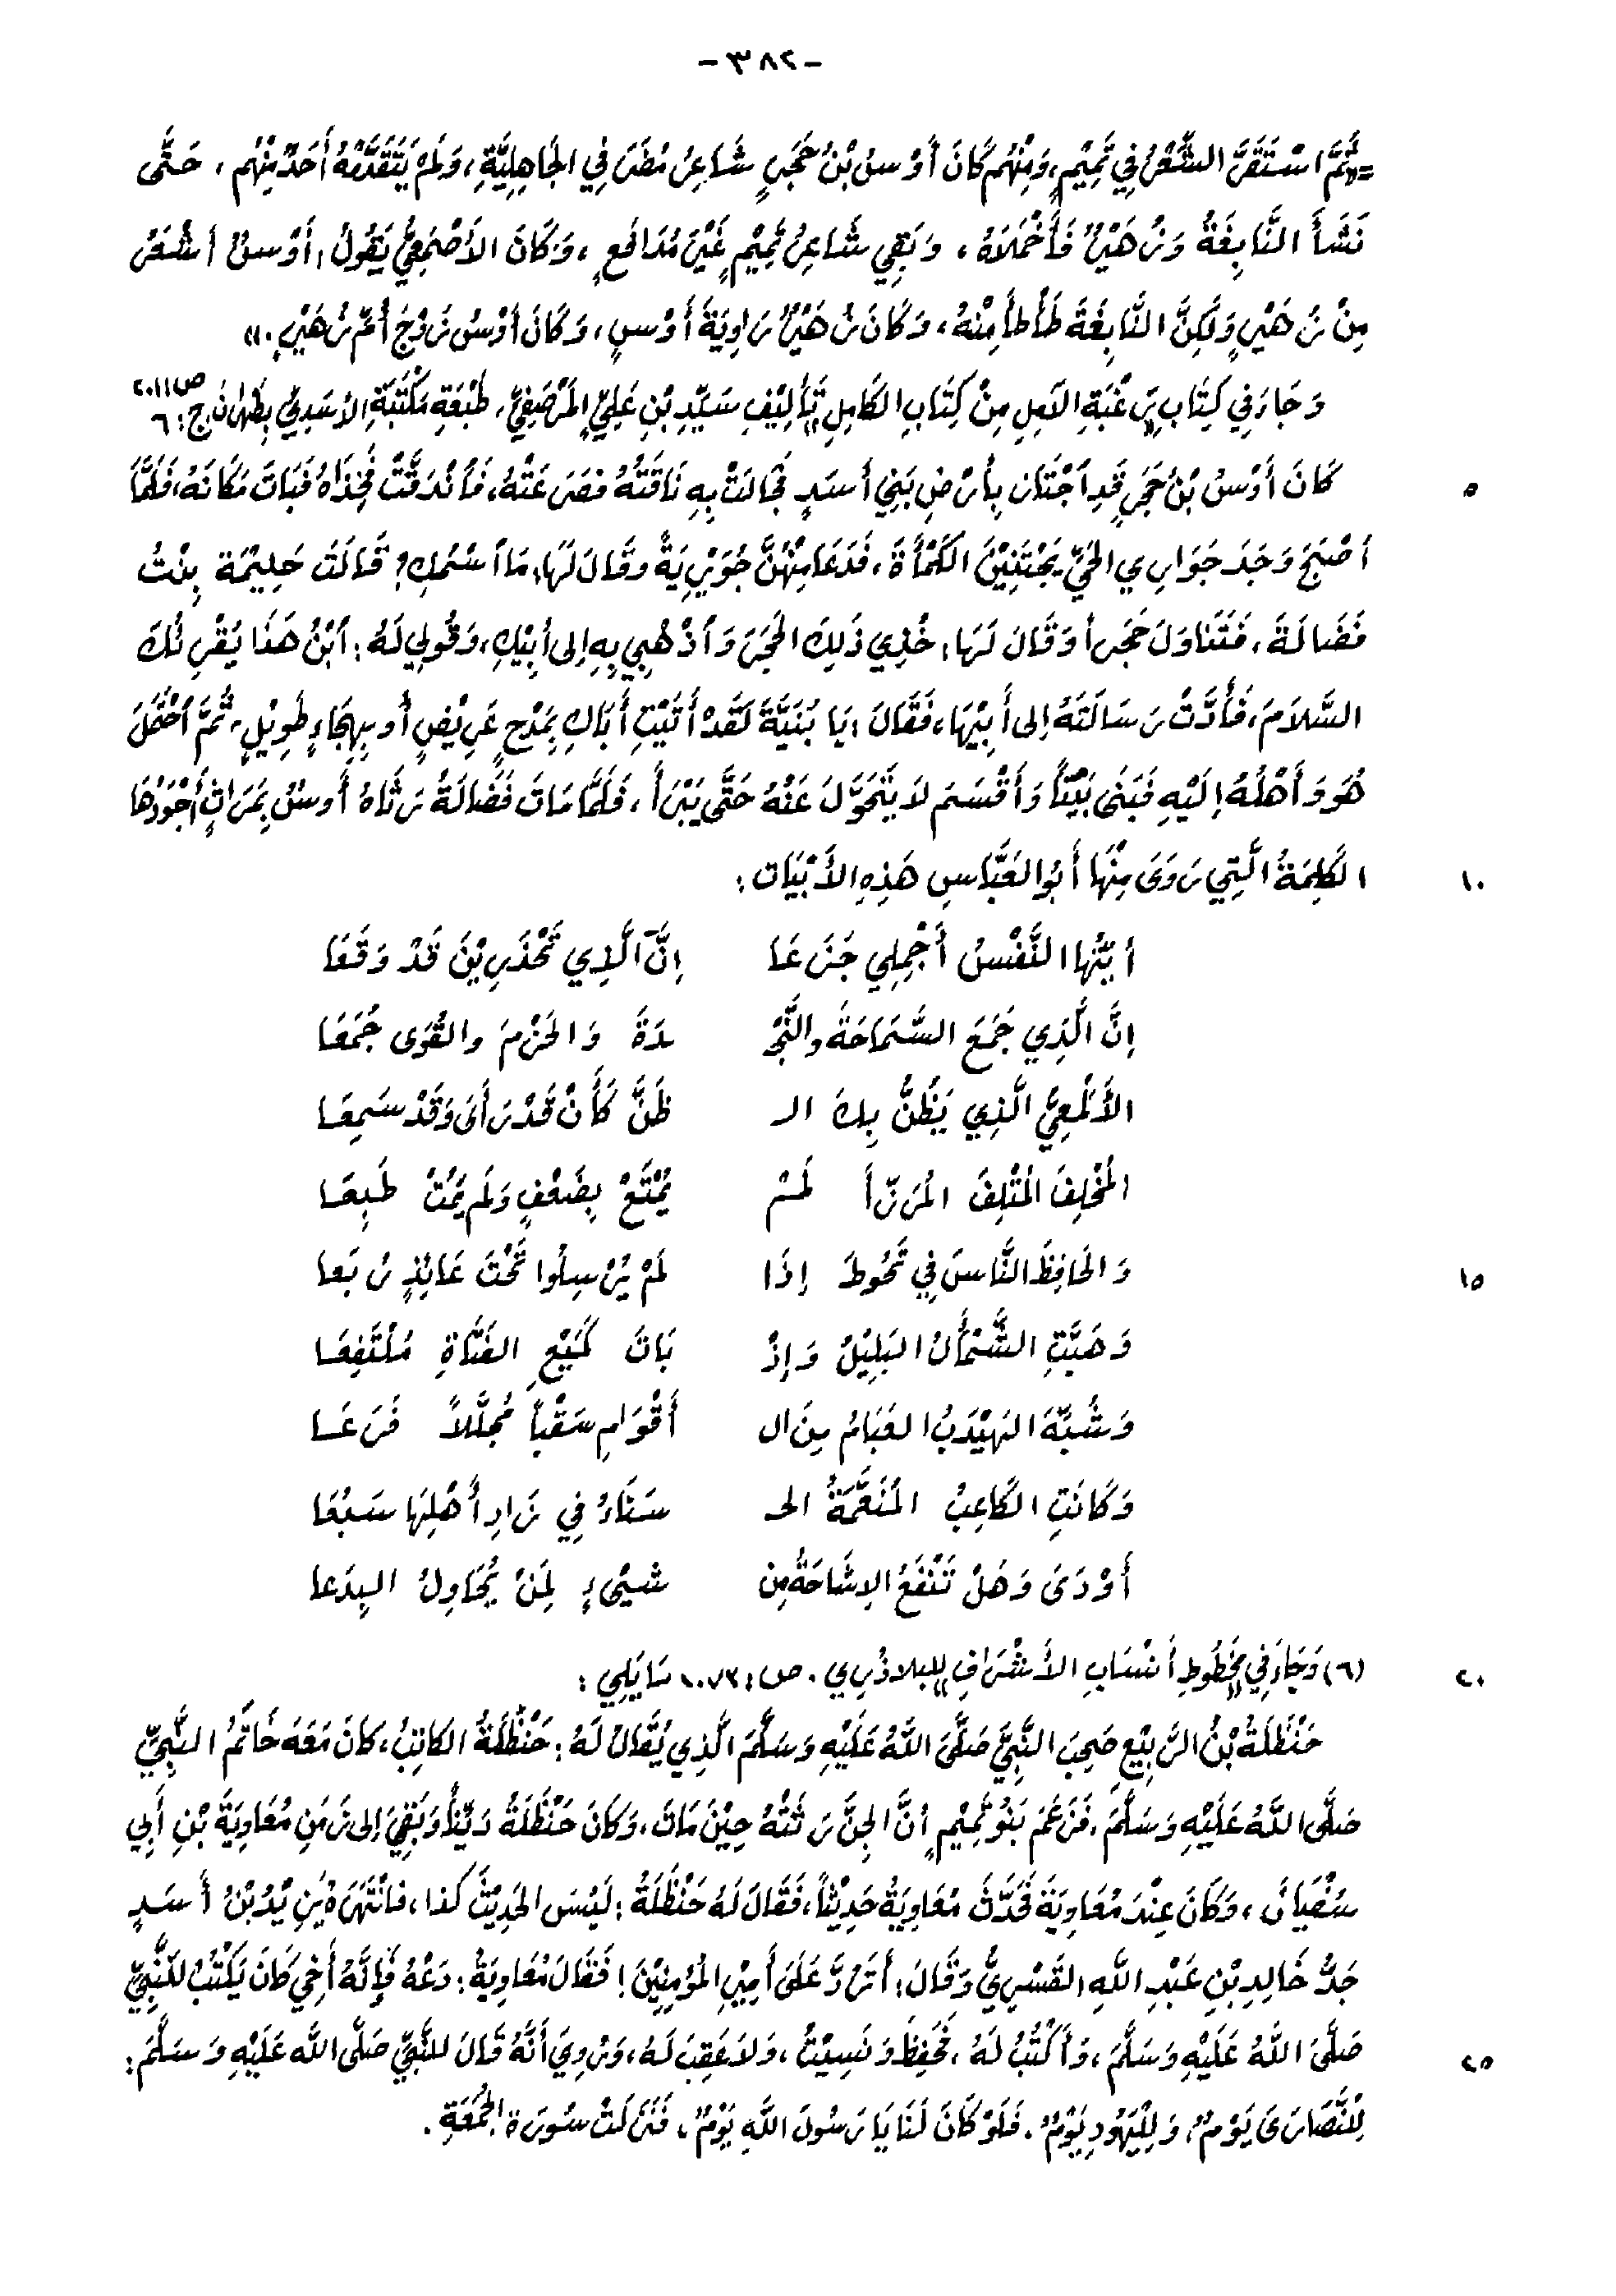 - ٣٨٢ -
= «ثُمَّ اسْتَقَرَّ الشِّعْرُ فِي تَمِيْمٍ، وَمِنْهُم كَانَ أَوْسُ بْنُ حَجَرٍ شَاعِرُ مُضَرَ فِي الجَاهِلِيَّةِ، وَلَمْ يَتَقَدَّمْهُ أَحَدٌ مِنْهُم، حَتَّى
نَشَأَ النَّابِغَةُ وَزُهَيْرٌ فَأَخْمَلَاهُ، وَبَقِي شَاعِرُ تَمِيْمٍ غَيْرَ مُدَافَعٍ، وَكَانَ الأَصْمَعِيُّ يَقُولُ: أَوْسٌ أَشْعَرُ
مِنْ زُهَيْرٍ وَلَكِنَّ النَّابِغَةَ طَأْطَأَ مِنْهُ، وَكَانَ زُهَيْرٌ رَاوِيَةَ أَوْسٍ، وَكَانَ أَوْسُ زَوْجَ أُمِّ زُهَيْرٍ.»
وَجَاءَ فِي كِتَابِ «رَغْبَةِ الآمِلِ مِنْ كِتَابِ الكَامِلِ» تَأْلِيْفِ سَيِّدِ بْنِ عَلِيٍّ المَرْصَفِيِّ، طَبْعَةِ مَكْتَبَةِ الأَسَدِيِّ بِطَهْرَانَ ج: ٦ ص: ٢٠١١
٥ كَانَ أَوْسُ بْنُ حَجَرٍ قَدِ اَجْتَازَ بِأَرْضِ بَنِي أَسَدٍ فَجَالَتْ بِهِ نَاقَتُهُ فَصَرَعَتْهُ، فَاَنْدَقَّتْ فَخِذَاهُ فَبَاتَ مَكَانَهُ، فَلَمَّا
أَصْبَحَ وَجَدَ جَوَارِي الحَيِّ يَجْتَنِيْنَ الكَمْأَةَ، فَدَعَا مِنْهُنَّ جُوَيْرِيَةً وَقَالَ لَهَا: مَا اَسْمُكِ؟ قَالَتْ حَلِيْمَةُ بِنْتُ
فَضَالَةَ، فَتَنَاوَلَ حَجَراً وَقَالَ لَهَا: خُذِي ذَلِكَ الحَجَرَ وَاَذْهَبِي بِهِ إِلى أَبِيْكِ، وَقُولِي لَهُ: اَبْنُ هَذَا يُقْرِئُكَ
السَّلَامَ، فَأَدَّتْ رَسَالَتَهُ إِلى أَبِيْهَا، فَقَالَ: يَا بُنَيَّةَ لَقَدْ أَتَيْتِ أَبَاكِ بِمَدْحٍ عَرِيْضٍ أَو بِهِجَاءٍ طَوِيْلٍ، ثُمَّ اَحْتَمَلَ
هُوَ وَأَهْلُهُ إِلَيْهِ فَبَنَى بَيْتاً وَأَقْسَمَ لَا يَتَحَوَّلَ عَنْهُ حَتَّى يَبْرَأَ، فَلَمَّا مَاتَ فَضَالَةُ رَثَاهُ أَوسُ بِمَرَاثٍ أَجْوَدُهَا
١٠ الكَلِمَةُ الَّتِي رَوَى مِنْهَا أَبُو العَبَّاسِ هَذِهِ الأَبْيَات:
أَيَّتُهَا النَّفْسُ أَجْمِلِي جَزَعَا إِنَّ اَلَّذِي تَحْذَرِيْنَ قَدْ وَقَعَا
إِنَّ الَّذِي جَمَعَ السَّمَاحَةَ والنَّجْـ ـدَةَ وَالحَزْمَ والقُوَى جُمَعَا
الأَلْمَعِيَّ الَّذِي يَظُنُّ بِكَ الـ ظَنَّ كَأَنْ قَدْ رَأَى وَقَدْ سَمِعَا
المُخْلِفَ المُتْلِفَ المُرَزَّأَ لَمْ يُمْتَعْ بِضَعْفٍ وَلَم يَمُتْ طَبِعَا
١٥ وَالحَافِظَ النَّاسَ فِي تَحُوطَ إِذَا لَمْ يُرْسِلُوا تَحْتَ عَائِذٍ رُبَعا
وَهَبَّتِ الشَّمْأَلُ البَلِيْلُ وَإِذْ بَاتَ كَمِيْعِ الفَتَاةِ مُلْتَفِعَا
وَشُبِّهَ الهَيْدَبُ العَبَامُ مِنَ ال أَقْوَامِ سَقْباً مُجَلَّلاً فَرَعَا
وَكَانَتِ الكَاعِبُ المُنَعَّمَةُ الحـ سَنَاءُ فِي زَادِ أَهْلِهَا سَبُعَا
أَوْدَى وَهَلْ تَنْفَعُ الإِشَاحَةُ مِن شَيْىءٍ لِمَنْ يُحَاوِلُ البِدَعا
٢٠ (٦) وَجَاءَ فِي «مَخْطُوطِ أَنْسَابِ الأَشْرَافِ» لِلبلاذُرِي. ص: ١٠٧٣ مَا يَلِي:
حَنْظَلَةُ بْنُ الرَّبِيْعِ صَحِبَ النَّبِيَّ صَلَّى اللَّهُ عَلَيْهِ وَسَلَّمَ الَّذِي يُقَالُ لَهُ: حَنْظَلَةُ الكَاتِبُ، كَانَ مَعَهَ خَاتَمُ النَّبِيِّ
صَلَّى اللَّهُ عَلَيْهِ وَسَلَّمَ، فَزَعَمَ بَنُو تَمِيْمٍ أنَّ الجِنَّ رَثَتْهُ حِيْنَ مَاتَ، وَكَانَ حَنْظَلَةُ دَيِّناً وَبَقِيَ إِلى زَمَنِ مُعَاوِيَةَ بْنِ أَبِي
سُفْيَانَ، وَكَانَ عِنْدَ مُعَاوِيَةَ فَحَدَّثَ مُعَاوِيَةُ حَدِيْثاً، فَقَالَ لَهُ حَنْظَلَةُ: لَيْسَ الحَدِيْثُ كَذا، فانْتَهَرَهُ يَزِيْدُ بْنُ أَسَدٍ
جَدُّ خَالِدِ بْنِ عَبْدِ اللَّهِ القَسْرِيُّ وَقَالَ: أَتَرُدَّ عَلَى أَمِيْرِ المُؤْمِنِيْنَ! فَقَالَ مُعَاوِيَةُ: دَعْهُ فَإِنَّهُ أَخِي كَانَ يَكْتُبُ لِلنَّبِيِّ
٢٥ صَلَّى اللَّهُ عَلَيْهِ وَسَلَّمَ، وَأَكْتُبُ لَهُ، فَحَفِظَ وَنَسِيْتُ، وَلاَ عَقِبَ لَهُ، وَرُوِيَ أَنَّهُ قَالَ لِلنَّبِيِّ صَلَّى اللَّه عَلَيْهِ وَسَلَّمَ:
لِلنَّصَارَى يَوْمٌ، وَلِلْيَهُودِ يَوْمٌ، فَلَوْ كَانَ لَنَا يَا رَسُولَ اللَّهِ يَوْمٌ، فَنَزَلَتْ سُورَة الجُمُعَةِ.